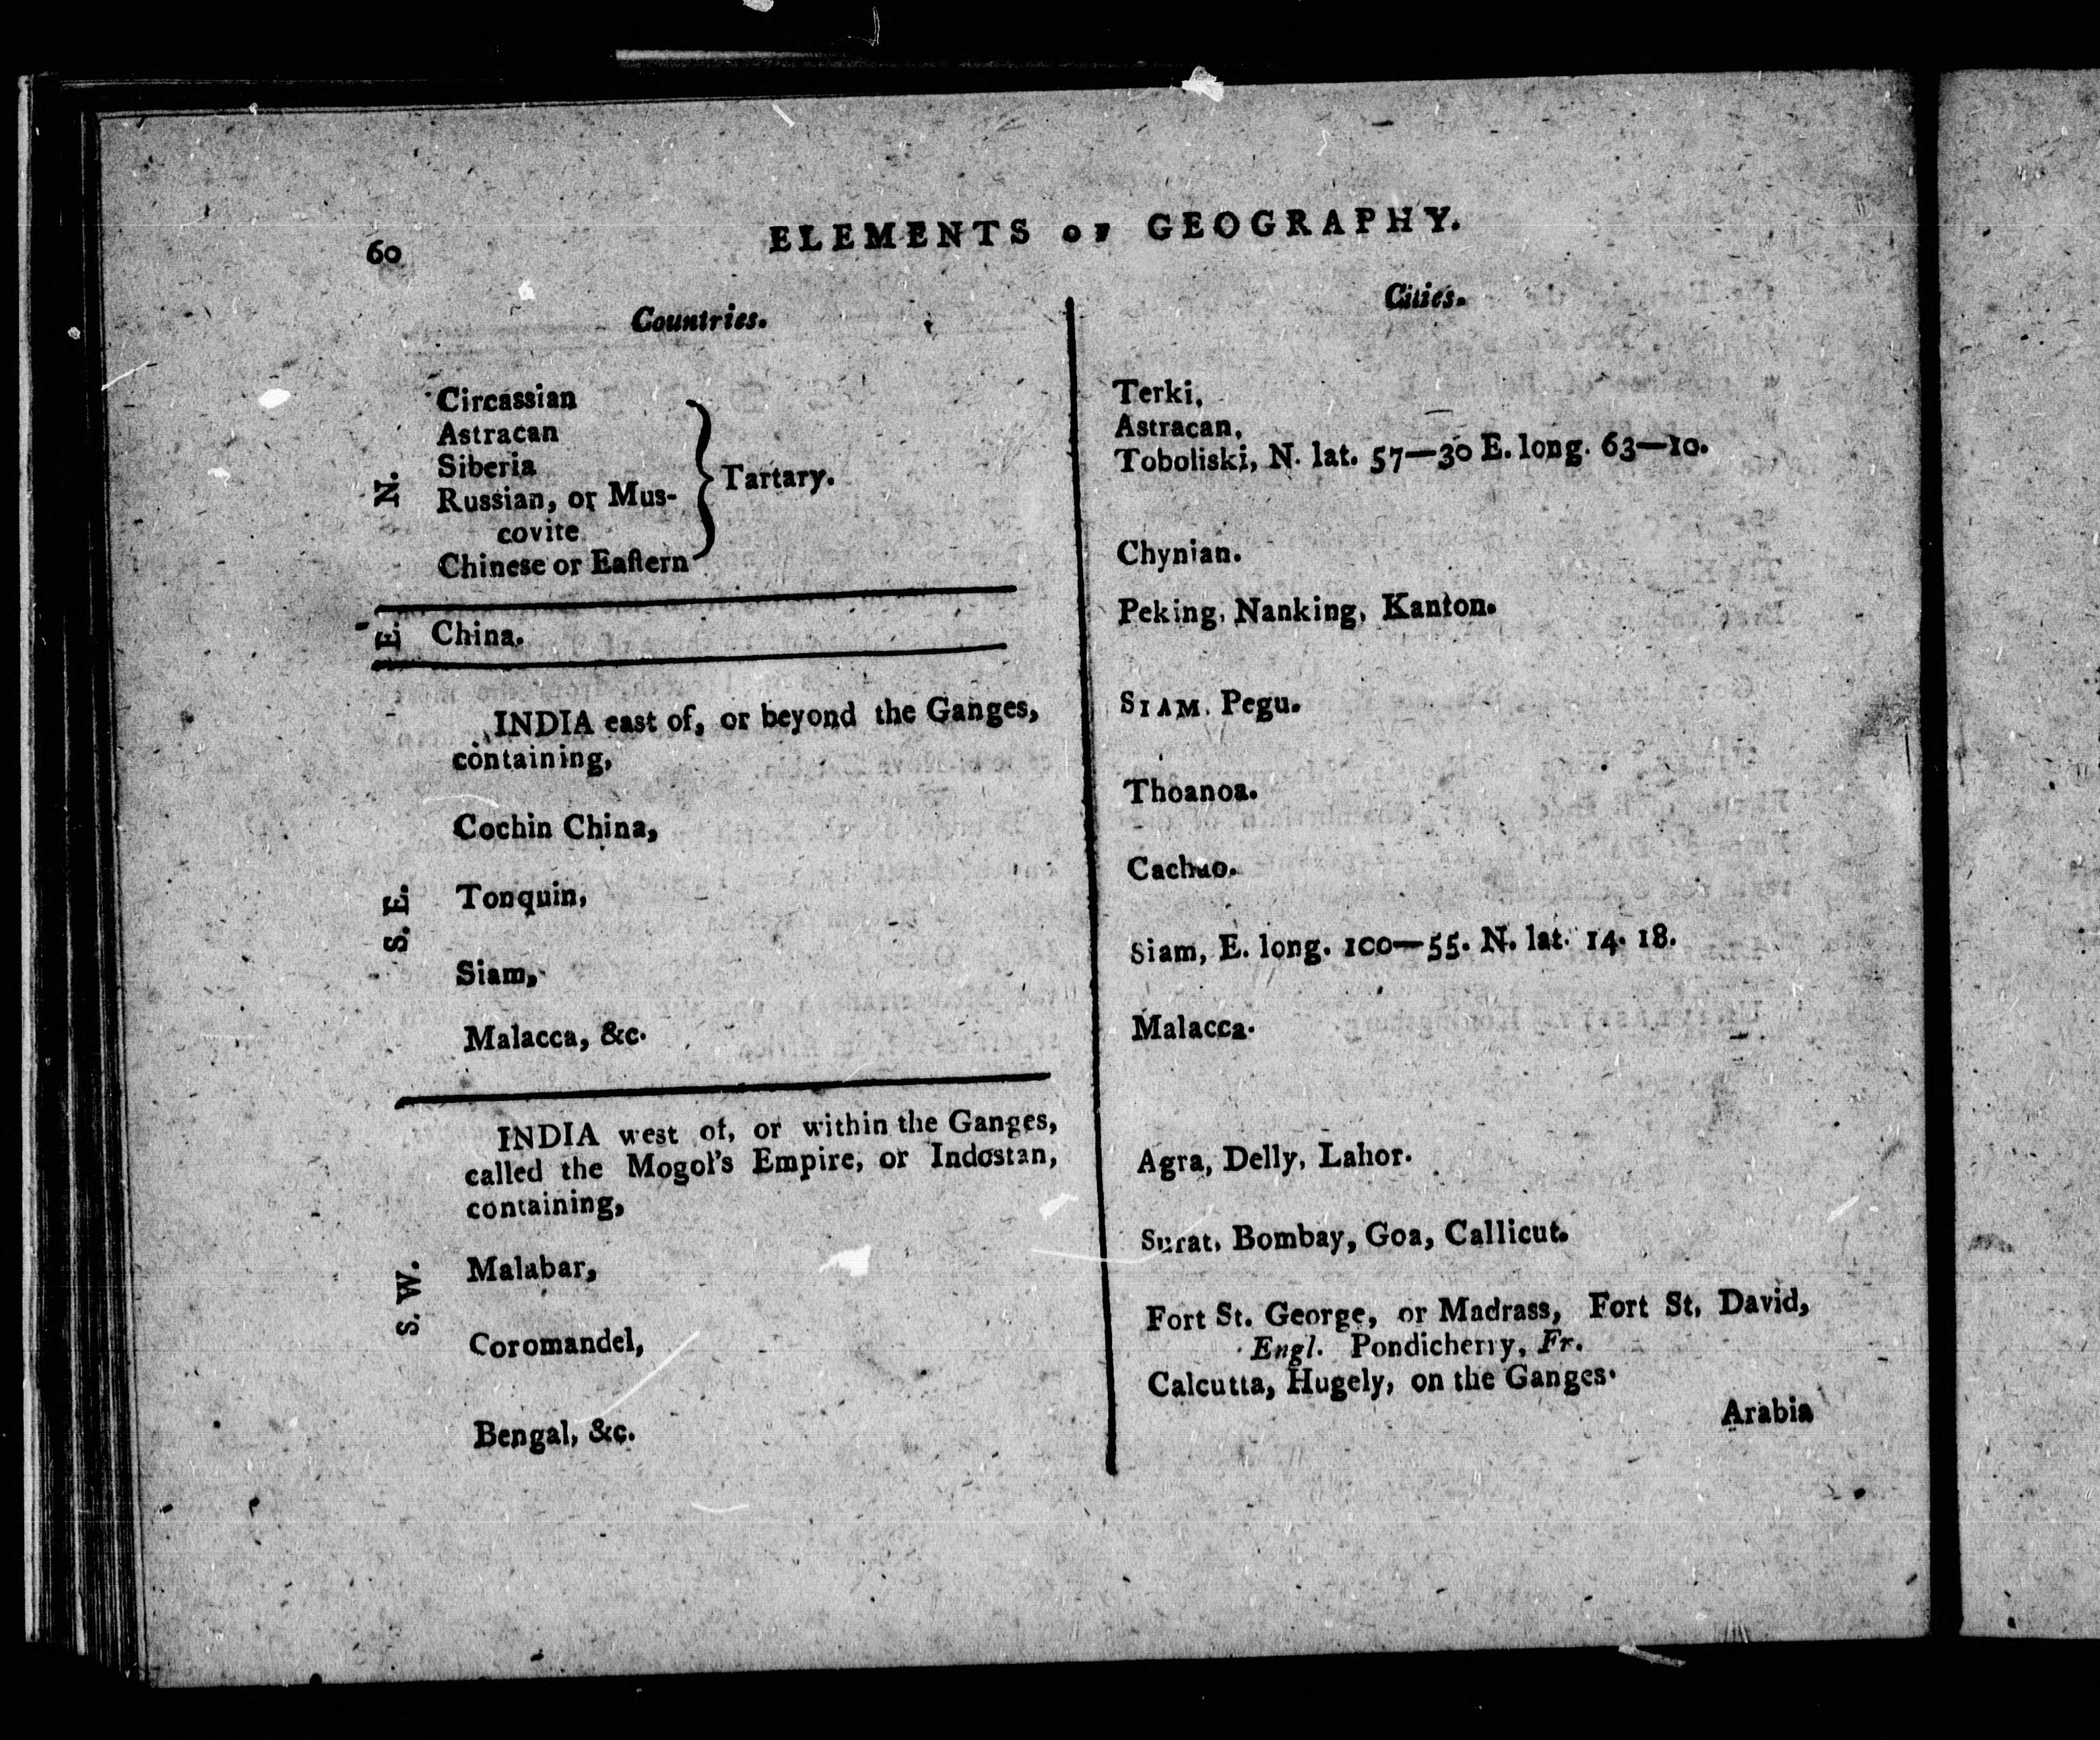 60
ELEMENTS OF GEOGRAPHY.
Countries.
N.
Circassian
Astracan
Siberia
Russian, or Mus-
covite
Chinese or Eaſtern
Tartary.
E.
China.
S. E.
INDIA east of, or beyond the Ganges,
containing,
Cochin China,
Tonquin,
Siam,
Malacca, &c.
S. W.
INDIA west of, or within the Ganges,
called the Mogol's Empire, or Indostan,
containing,
Malabar,
Coromandel,
Bengal, &c.
Cities.
Terki,
Astracan,
Toboliski, N. lat. 57—30 E. long. 63—10.
Chynian.
Peking, Nanking, Kanton.
SIAM. Pegu.
Thoanoa.
Cachao.
Siam, E. long. 100—55. N. lat. 14. 18.
Malacca.
Agra, Delly, Lahor.
Surat, Bombay, Goa, Callicut.
Fort St. George, or Madrass, Fort St. David,
Engl. Pondicherry, Fr.
Calcutta, Hugely, on the Ganges.
Arabia